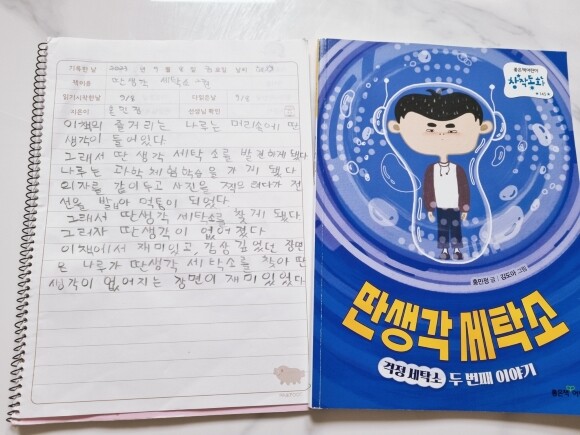 기록한 날 2023 년 9 월 8 일 금요일 날씨
책이름 딴생각 세탁소 2권
읽기시작한날 9/8 다읽은날 9/8
지은이 홍민정 선생님 확인
이책의 줄거리는 나루는 머리속에 딴
생각이 들어있다
그래서 딴 생각 세탁소를 발견하게 됐다
나루는 과학 체험학습을 가게 됐다
의자를 갖이두고 사진을 찍으려다가 전
선을 밟아 먹통이 되었다
그래서 딴생각 세탁소를 찾게 됐다
그러자 딴생각이 없어졌다
이 책에서 재미있고, 감상 깊었던 장면
은 나루가 딴생각 세탁소를 찾아 딴
생각이 없어지는 장면이 재미있었다
좋은책어린이
창작동화
145
홍민정 글 | 김도아 그림
딴생각 세탁소
걱정 세탁소 두 번째 이야기
좋은책